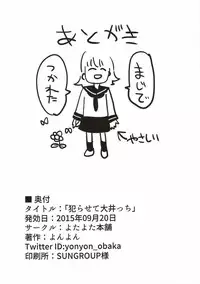 あとがき
まじで
つかれた
やさしい
■ 奥付
タイトル：「犯らせて大井っち」
発効日：2015年09月20日
サークル：よたよた本舗
著作：よんよん
Twitter ID:yonyon_obaka
印刷所：SUNGROUP様